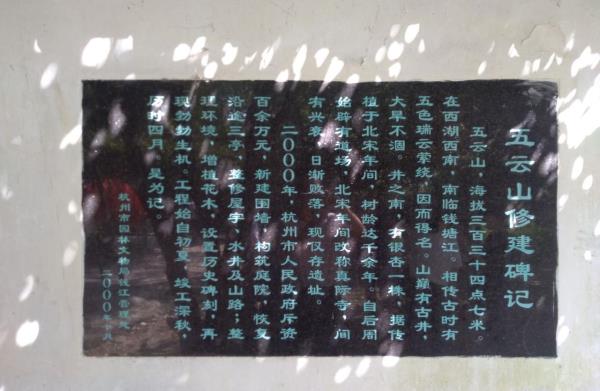 五云山修建碑记
五云山，海拔三百三十四点七米。
在西湖西南，南临钱塘江。相传古时有
五色瑞云萦绕，因而得名。山巅有古井，
大旱不涸。井之南，有银杏一株，据传
植于北宋年间，树龄达千余年。自后周
始辟有道场，北宋年间改称真际寺，间
有兴衰，日渐败落，现仅存遗址。
二000年，杭州市人民政府斥资
百余万元，新建围墙，构筑庭院，恢复
沿途三亭，整修屋宇，水井及山路；整
理环境，增植花木，设置历史碑刻，再
现勃勃生机。工程始自初夏，竣工深秋，
历时四月，是为记。
杭州市园林文物局钱江管理处
二000年十月